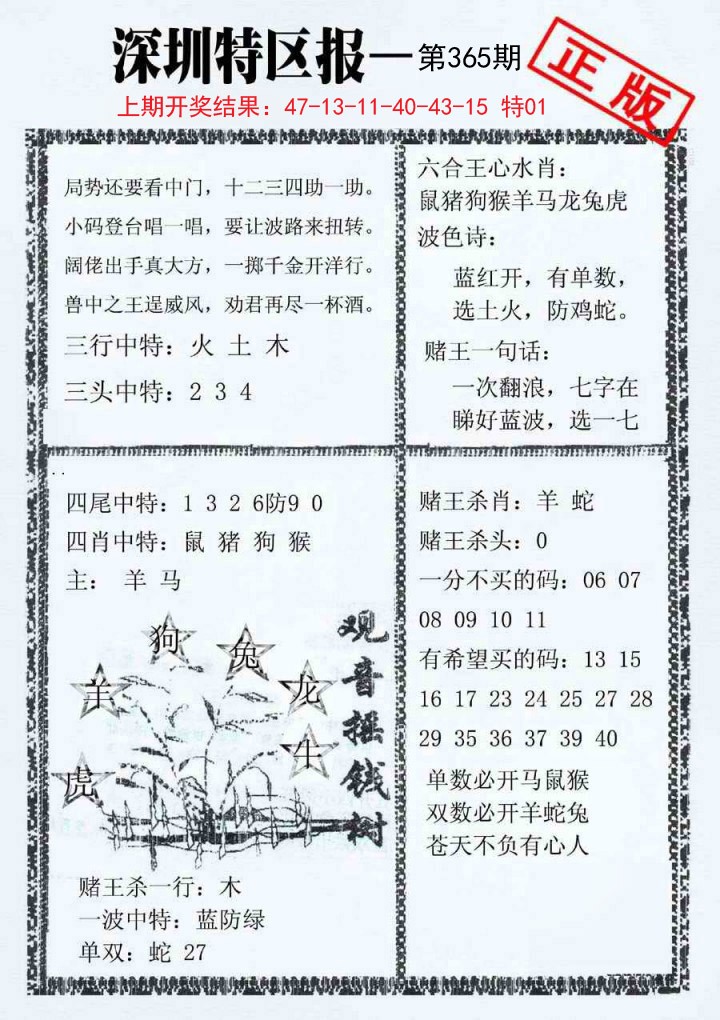 深圳特区报—第365期
正版
上期开奖结果：47-13-11-40-43-15 特01
局势还要看中门，十二三四助一助。
小码登台唱一唱，要让波路来扭转。
阔佬出手真大方，一掷千金开洋行。
兽中之王逞威风，劝君再尽一杯酒。
三行中特：火 土 木
三头中特：2 3 4
六合王心水肖：
鼠猪狗猴羊马龙兔虎
波色诗：
蓝红开，有单数，
选土火，防鸡蛇。
赌王一句话：
一次翻浪，七字在
睇好蓝波，选一七
..
四尾中特：1 3 2 6防9 0
四肖中特：鼠 猪 狗 猴
主： 羊 马
狗
兔
羊
龙
牛
虎
观音摇钱树
赌王杀一行：木
一波中特：蓝防绿
单双：蛇 27
赌王杀肖：羊 蛇
赌王杀头：0
一分不买的码：06 07
08 09 10 11
有希望买的码：13 15
16 17 23 24 25 27 28
29 35 36 37 39 40
单数必开马鼠猴
双数必开羊蛇兔
苍天不负有心人